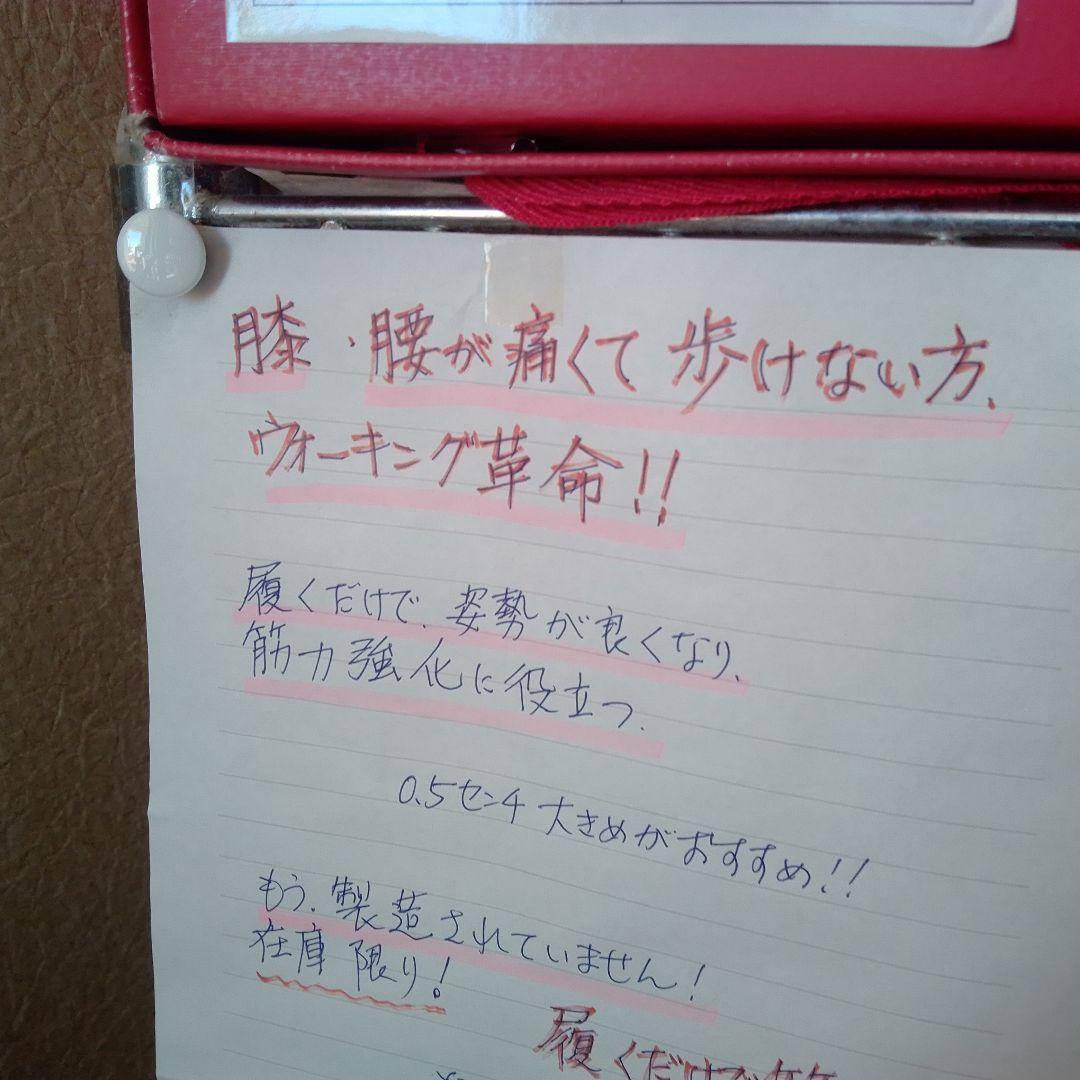 膝・腰が痛くて歩けない方、
ウォーキング革命!!
履くだけで、姿勢が良くなり、
筋力強化に役立つ。
0.5センチ大きめがおすすめ!!
もう、製造されていません!
在庫限り!
履くだけで